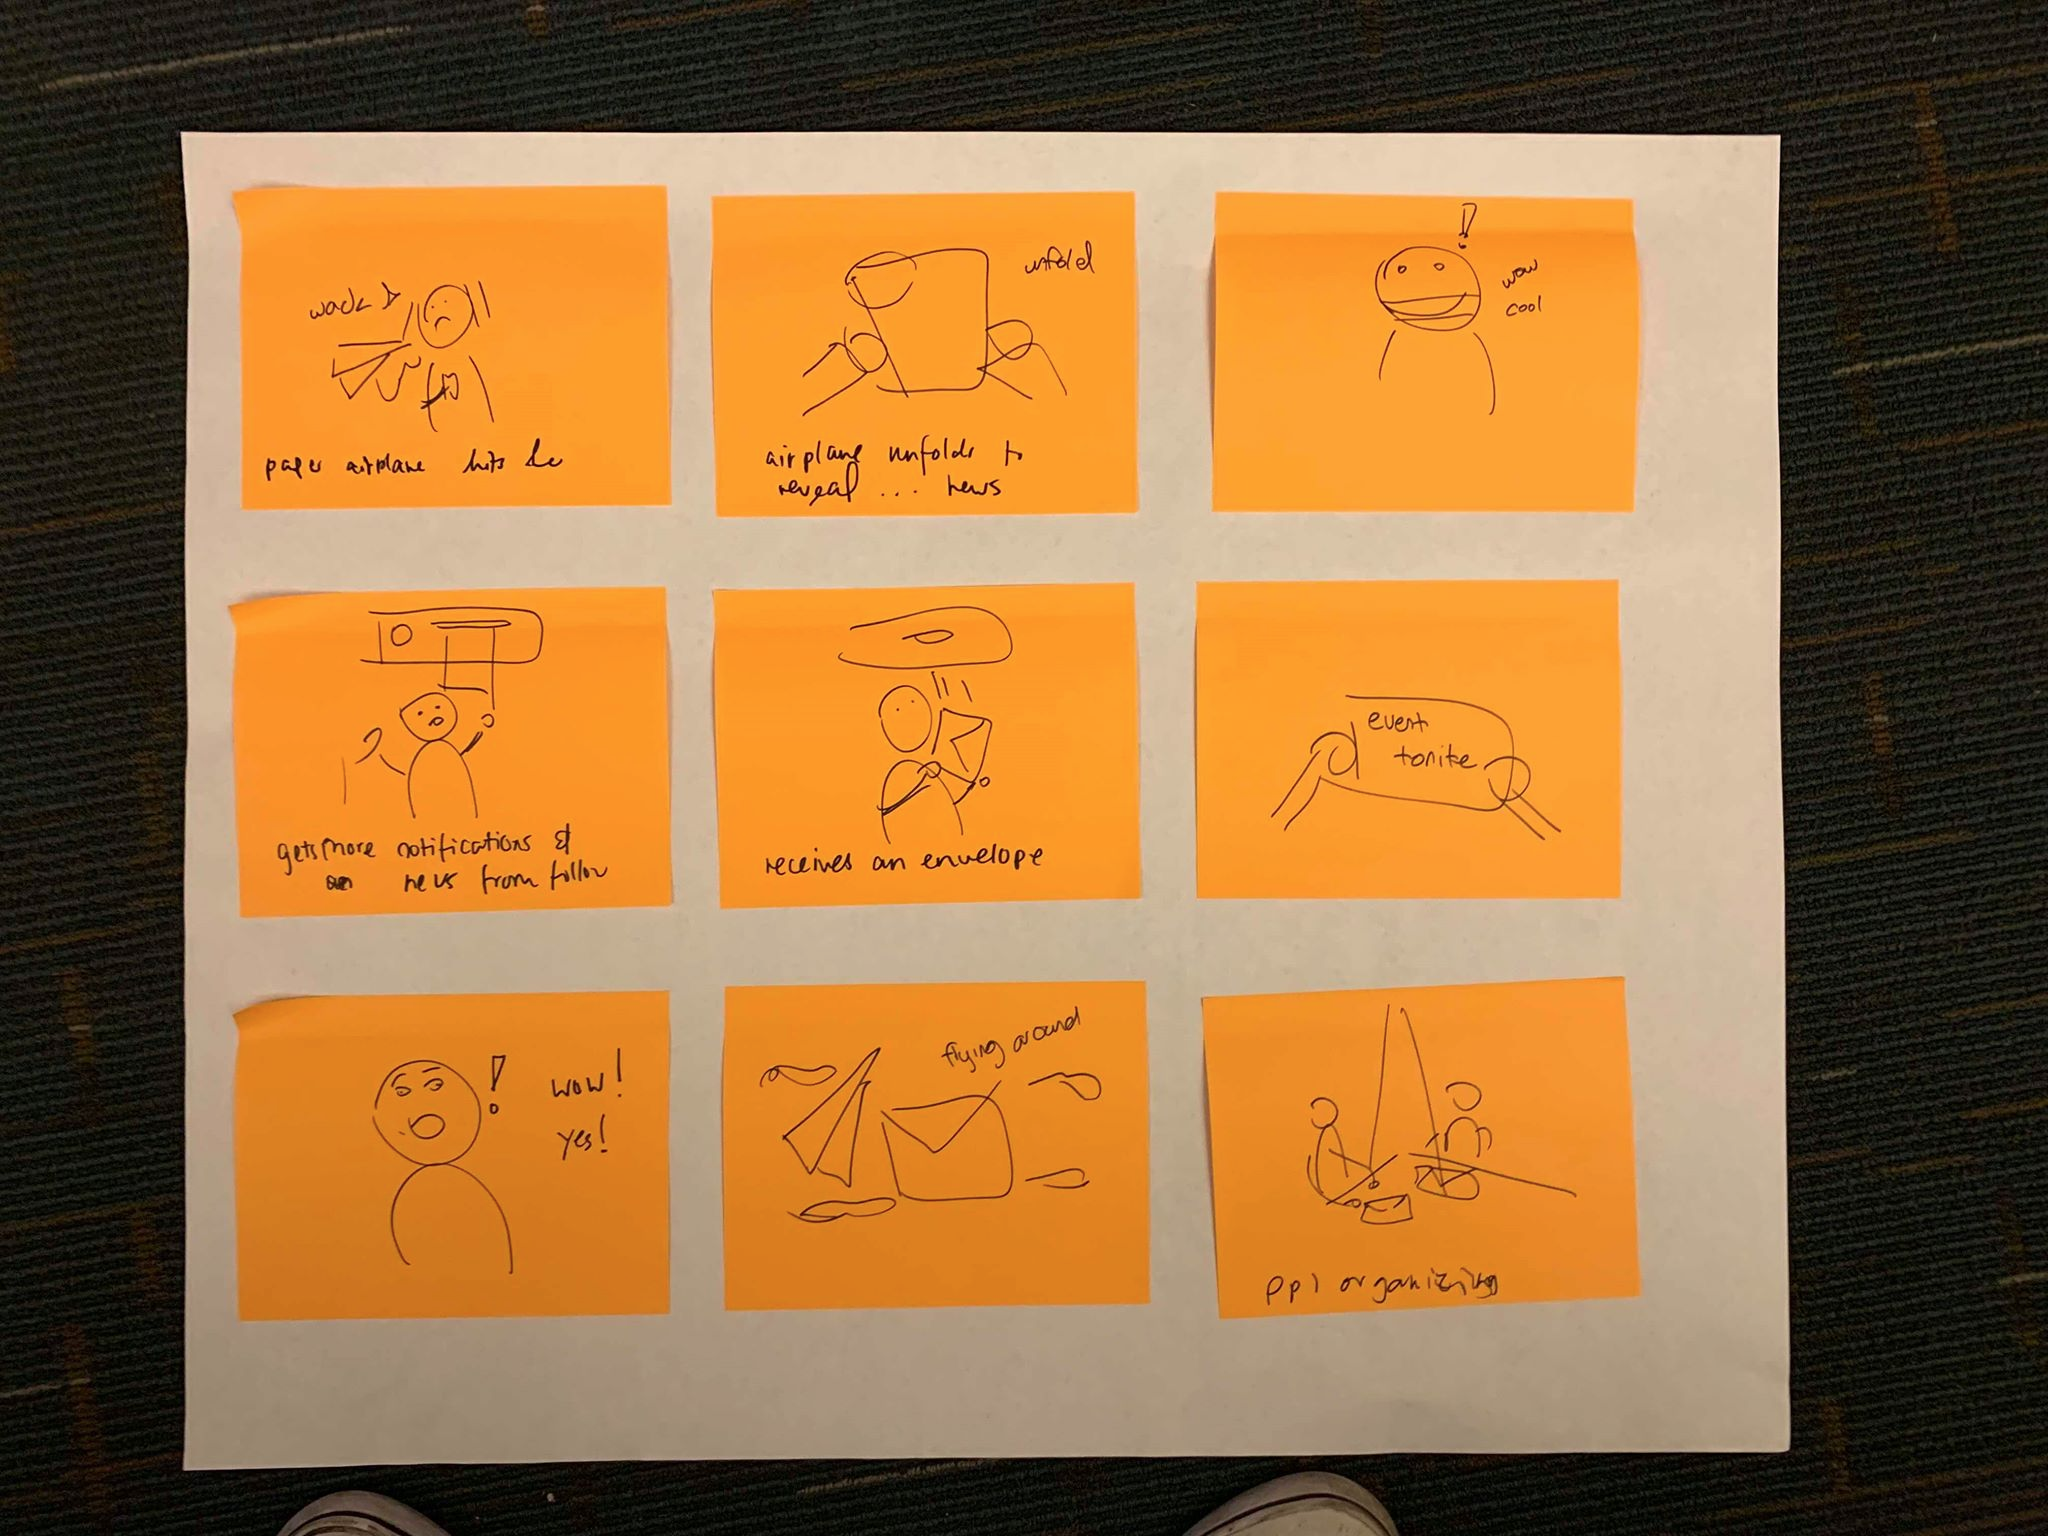 wack
paper airplane hits
unfold
airplane unfolds to
reveal ... news
!
wow
cool
gets more notifications &
news from follow
receives an envelope
event
tonite
! wow!
yes!
flying around
ppl organizing